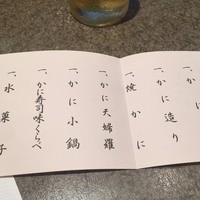 一、焼かに
一、かに造り
一、かに天婦羅
一、かに小鍋
一、かに寿司味くらべ
一、水菓子